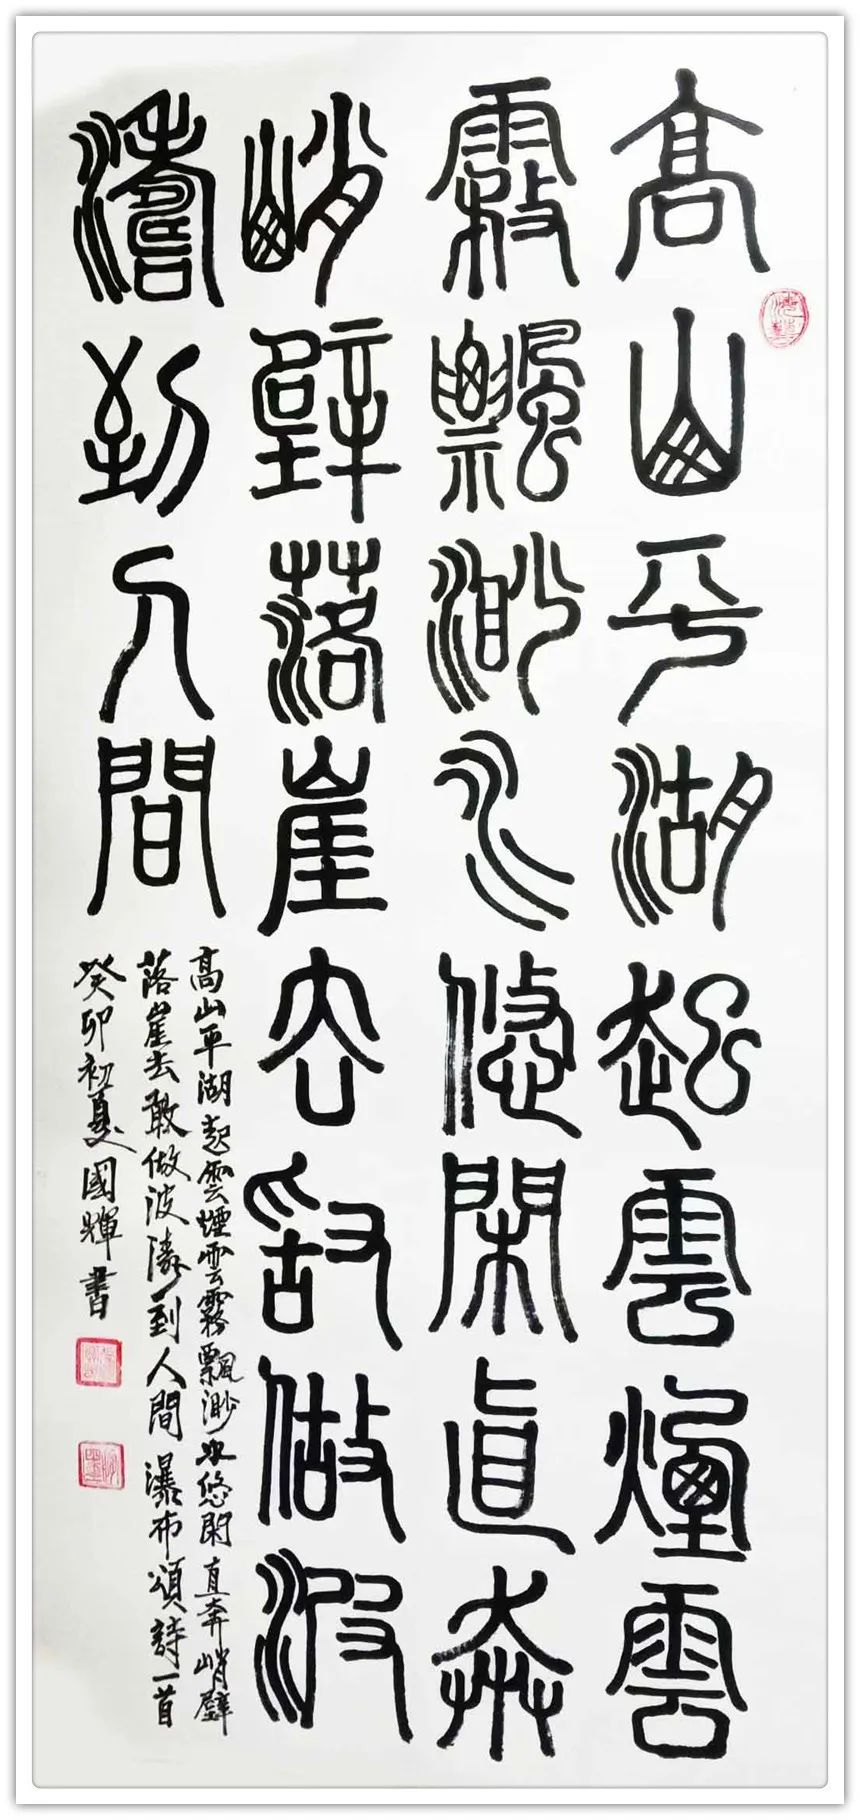 高山平湖起雲煙雲
霧飄渺水悠閑直奔
峭壁落崖去敢做波
濤到人間
高山平湖起雲煙雲霧飄渺水悠閑直奔峭壁
落崖去敢做波濤到人間瀑布頌詩一首
癸卯初夏國輝書